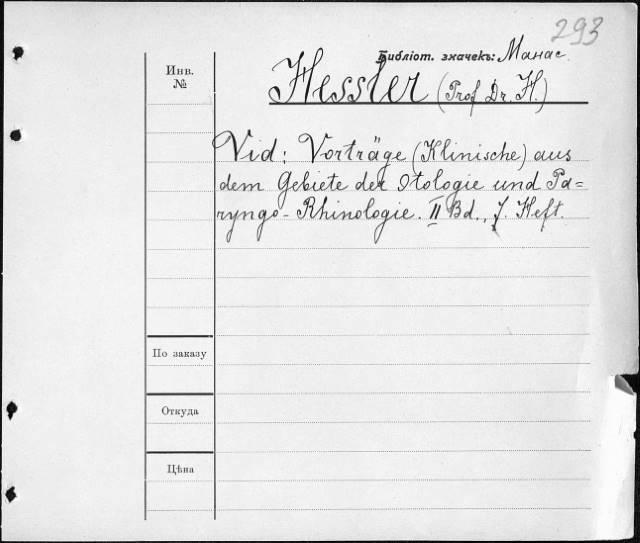 293
Библіот. значекъ: Манас.
Инв.
№
Hessler (Prof Dr. H.)
Vid: Vorträge (Klinische) aus
dem Gebiete der Otologie und Pa=
ryngo-Rhinologie. II Bd., 7. Heft.
По заказу
Откуда
Цѣна